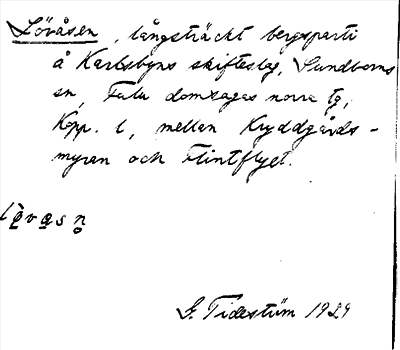 Lövåsen, långsträckt bergsparti
å Karlsbyns skifteslag, Sundborns
sn, Falu domsagas norra tg,
Kopp. l, mellan Kryddgårds-
myren och Flintflyet.
lèvasn
G. Tideström 1929